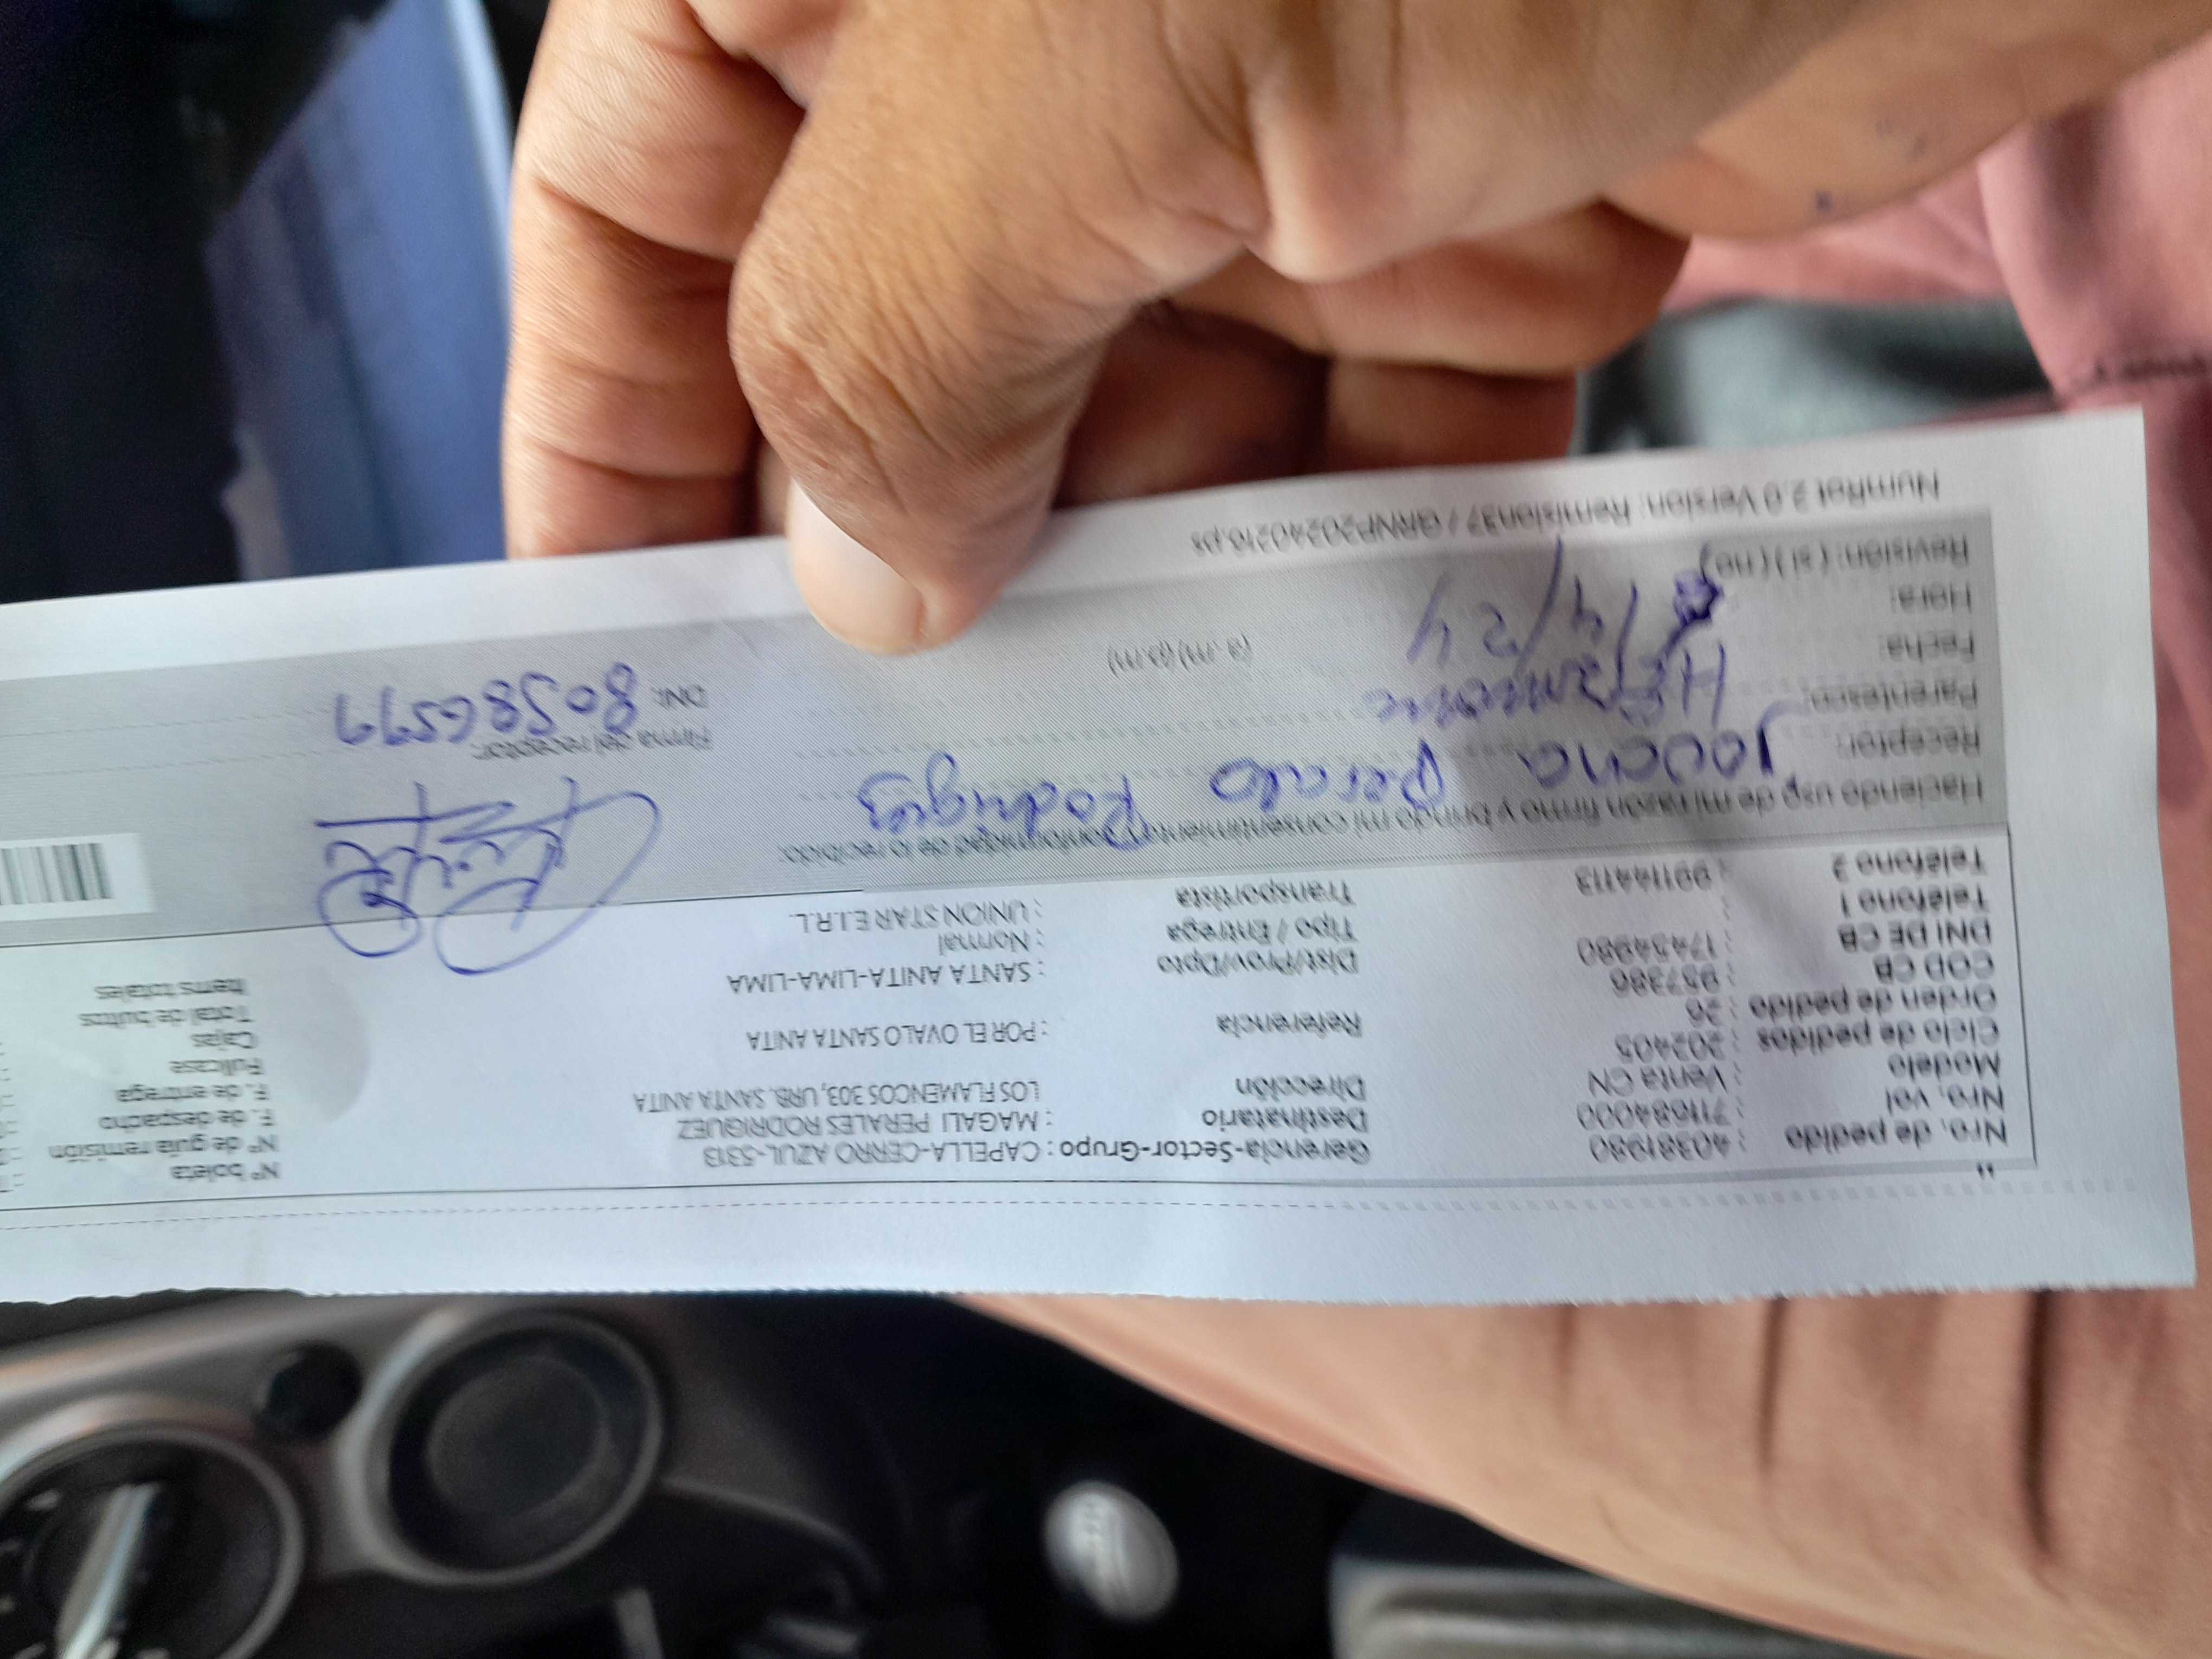 Nro. de pedido : 40381980 Gerencia-Sector-Grupo : CAPELLA-CERRO AZUL-5313 Nº boleta
Nro. vol : 711684000 Destinatario : MAGALI PERALES RODRIGUEZ Nº de guía remisión
Modelo : Venta CN Dirección LOS FLAMENCOS 303, URB. SANTA ANITA F. de despacho
Ciclo de pedidos : 202405 F. de entrega
Orden de pedido : 26 Referencia : POR EL OVALO SANTA ANITA Fullcase
COD CB : 957386 Cajas
DNI DE CB : 17434980 Dist/Prov/Dpto : SANTA ANITA-LIMA-LIMA Total de bultos
Teléfono 1 : Tipo / Entrega : Normal Items totales
Teléfono 2 : 991144113 Transportista : UNION STAR E.I.R.L.
Haciendo uso de mi razón firmo y brindo mi consentimiento y conformidad de lo recibido:
Receptor: Rodriguez
Parentesco: Firma del receptor:
Fecha: /4/24 DNI: 80586599
Hora: (a.m)(p.m)
Revisión: (si) (no)
NumRot 2.0 Version: Remision37 / GRNP20240216.ps